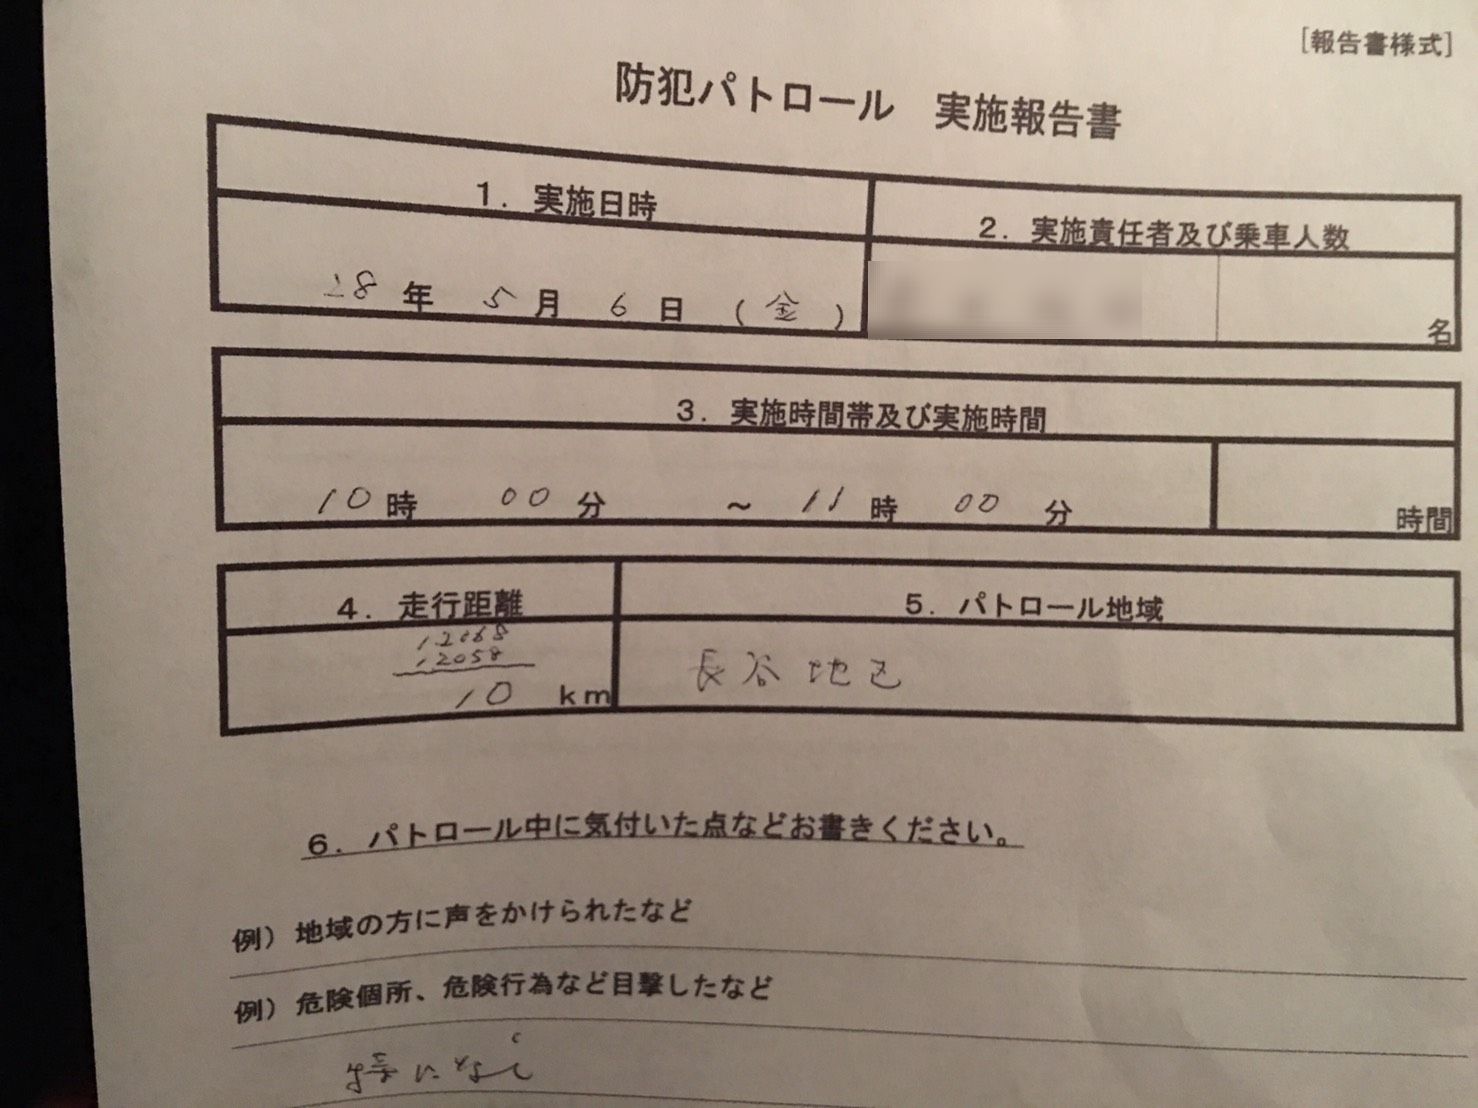 [報告書様式]
防犯パトロール 実施報告書
1. 実施日時
2. 実施責任者及び乗車人数
28年 5月 6日 (金)
名
3. 実施時間帯及び実施時間
10時 00分 ~ 11時 00分
時間
4. 走行距離
5. パトロール地域
12068
12058
10 km
長谷地区
6. パトロール中に気付いた点などお書きください。
例) 地域の方に声をかけられたなど
例) 危険個所、危険行為など目撃したなど
特になし